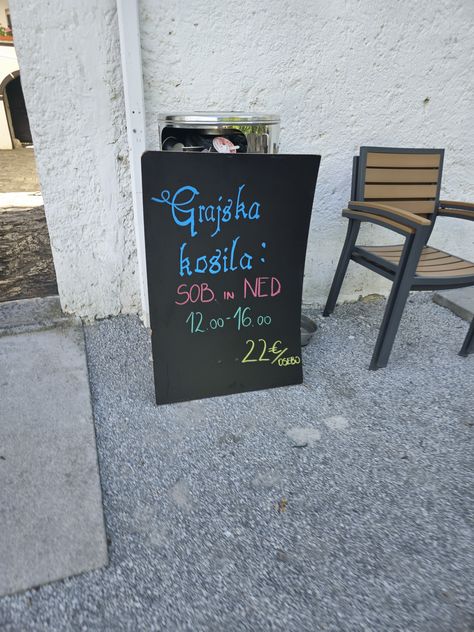 Grajska
kosila:
SOB. IN NED
12.00-16.00
22€/OSEBO